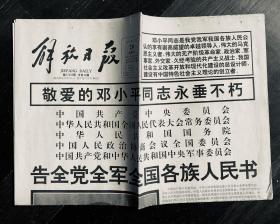 解放日报
JIEFANG DAILY
邓小平同志是我党我军我国各族人民公
认的享有崇高威望的卓越领导人，伟大的马克
思主义者，伟大的无产阶级革命家、政治家、军
事家、外交家，久经考验的共产主义战士，我国
社会主义改革开放和现代化建设的总设计师，
建设有中国特色社会主义理论的创立者。
敬爱的邓小平同志永垂不朽
中国共产党中央委员会
中华人民共和国全国人民代表大会常务委员会
中华人民共和国国务院
中国人民政治协商会议全国委员会
中国共产党和中华人民共和国中央军事委员会
告全党全军全国各族人民书